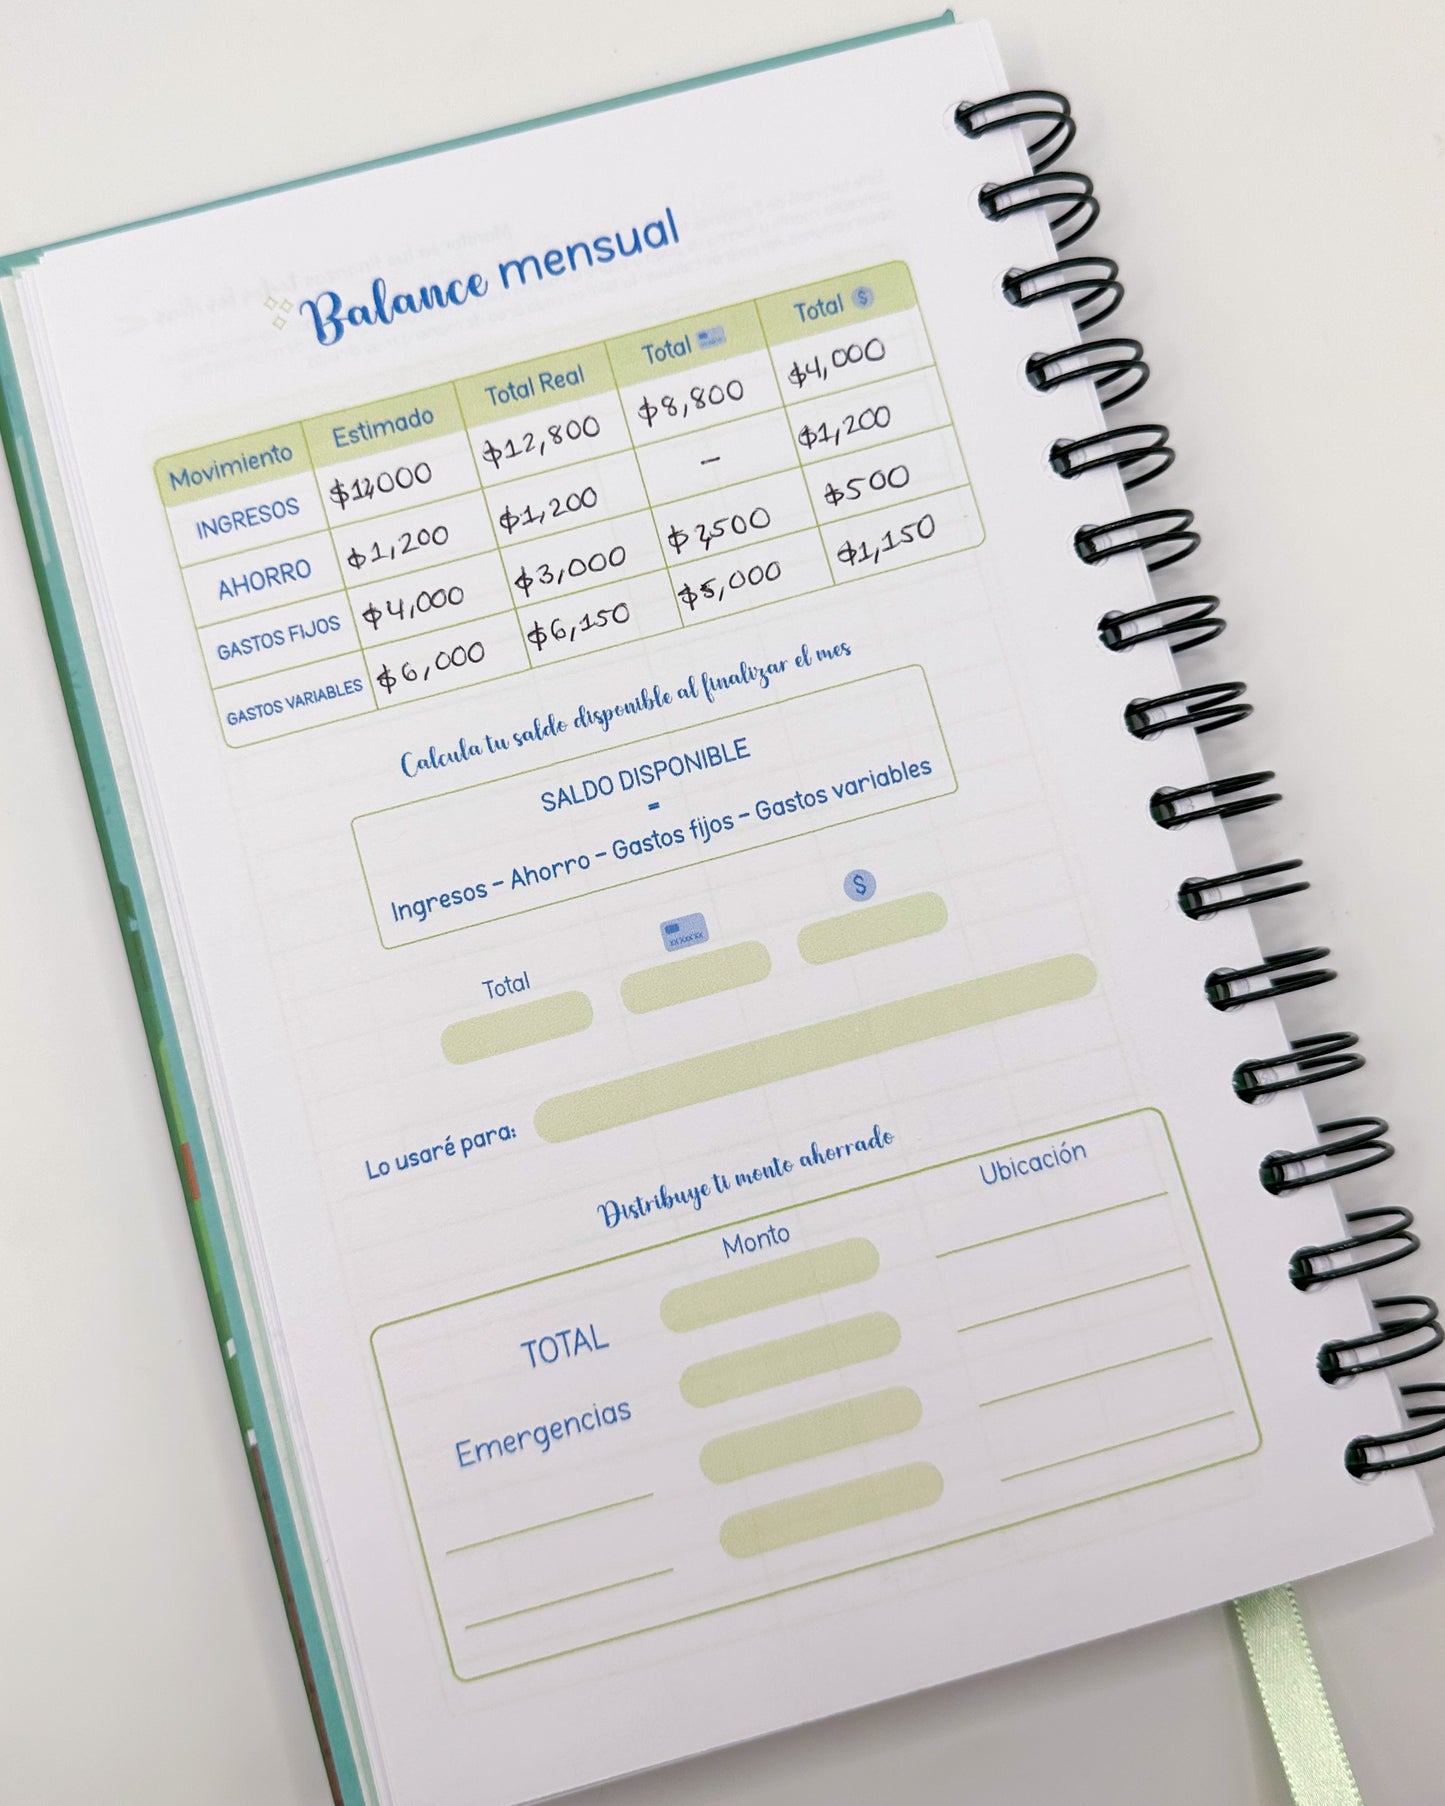 Balance mensual
Movimiento Estimado Total Real Total Total $
INGRESOS $12,000 $12,800 $8,800 $4,000
AHORRO $1,200 $1,200 – $1,200
GASTOS FIJOS $4,000 $3,000 $2,500 $500
GASTOS VARIABLES $6,000 $6,150 $5,000 $1,150
Calcula tu saldo disponible al finalizar el mes
SALDO DISPONIBLE
=
Ingresos - Ahorro - Gastos fijos - Gastos variables
Total $
Lo usaré para:
Distribuye ti monto ahorrado
Monto Ubicación
TOTAL
Emergencias